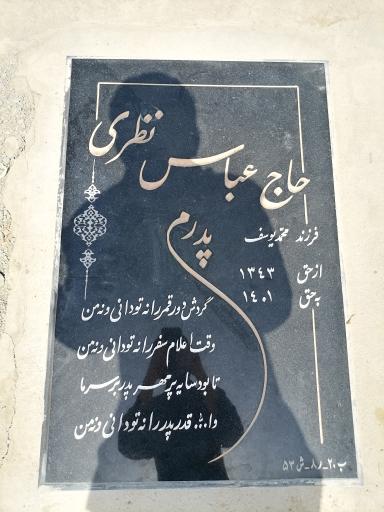 حاج عباس نظری
فرزند محمدیوسف
پدرم
از حق ۱۳۴۳
به حق ۱۴۰۱
گردش دور قمر را نه تو دانی و نه من
وقت اعلام سفر را نه تو دانی و نه من
تا بود سایه پر مهر پدر بر سر ما
والله قدر پدر را نه تو دانی و نه من
ب۲۰-ر۸-ش۵۳